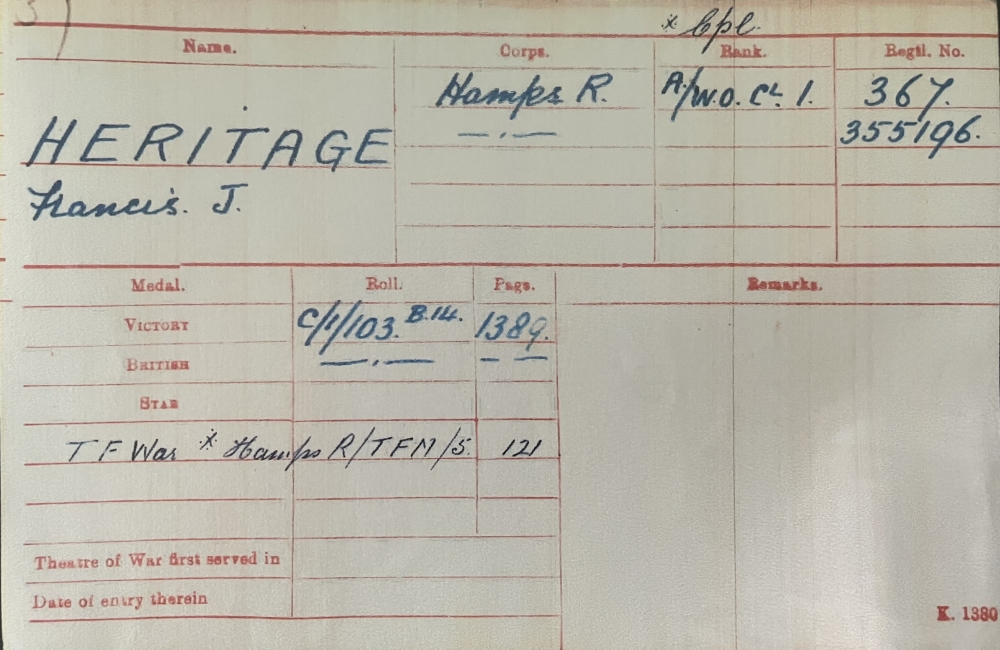 * Cpl.
Name. Corps. Rank. Regtl. No.
Hamps R. A/W.O. Cl. 1. 367.
HERITAGE — . — 355196.
Francis. J.
Medal. Roll. Page. Remarks.
VICTORY C/1/103. B.14. 1389.
BRITISH — . — — —
STAR
T F War * Hamps R/TFM/5. 121
Theatre of War first served in
Date of entry therein
K. 1380